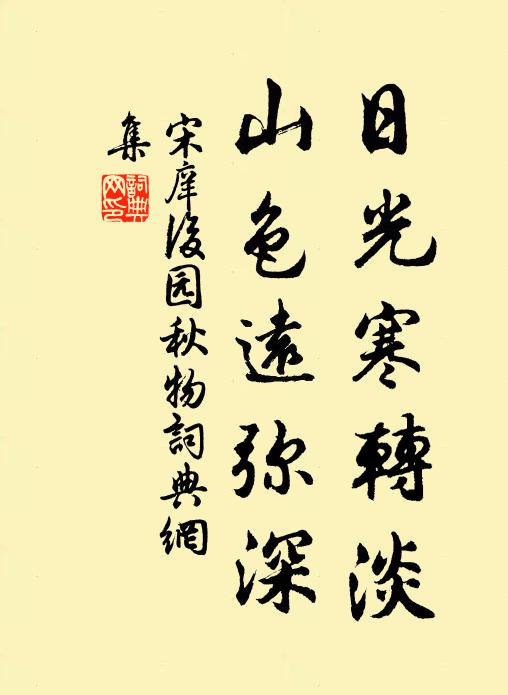 日光寒轉淡
山色遠弥深
宋庠後园秋物詞典網
集
詞典
网印